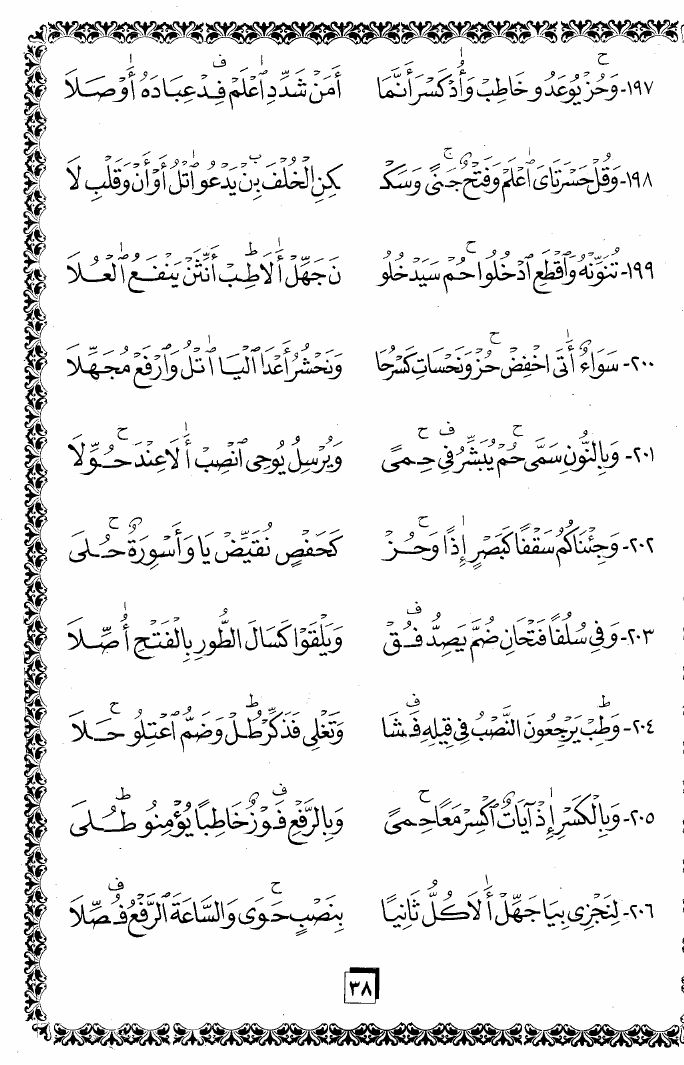 ١٩٧- وَحُزْ يُوعَدُو خَاطِبْ وَأُذْ كَسْرَ أَنَّمَا أَمَنْ شَدِّدِ اعْلَمْ فِدْ عِبَادَهُ أَوْصَلَا
١٩٨- وَقُلْ حَسْرَتَايَ اعْلَمْ وَفَتْحٌ جَنًى وَسَكْـ ـكِنِ الْخُلْفَ بِنْ يَدْعُو اتْلُ أَوْ أَنْ وَقَلْبِ لَا
١٩٩- تُنَوِّنْهُ وَاقْطَعِ ادْخُلُوا حُمْ سَيَدْخُلُو نَ جَهِّلْ أَلَا طِبْ أَنِّثَنْ يَنْفَعُ الْعُلَا
٢٠٠- سَوَاءٌ أَتَى اخْفِضْ حُزْ وَنَحْسَاتِ كَسْرُ حَا وَنَحْشُرُ أَعْدَا الْيَا اتْلُ وَارْفَعْ مُجَهِّلَا
٢٠١- وَبِالنُّونِ سَمَّى حُمْ يُبَشِّرُ فِي حِمًى وَيُرْسِلُ يُوحِي انْصِبْ أَلَا عِنْدَ حُوِّلَا
٢٠٢- وَجِئْنَاكُمُ سَقْفًا كَبَصْرٍ إِذًا وَحُزْ كَحَفْصٍ نُقَيِّضْ يَا وَأَسْوِرَةٌ حُلَى
٢٠٣- وَفِي سُلُفًا فَتْحَانِ ضُمَّ يَصِدُّ فُقْ وَيَلْقَوْا كَسَالَ الطُّورِ بِالْفَتْحِ أُصِّلَا
٢٠٤- وَطِبْ يَرْجِعُونَ النَّصْبُ فِي قِيلِهِ فَشَا وَتَغْلِي فَذَكِّرْ طُلْ وَضَمُّ اعْتِلُو حَلَا
٢٠٥- وَبِالْكَسْرِ إِذْ آيَاتٌ اكْسِرْ مَعًا حِمًى وَبِالرَّفْعِ فَوْزٌ خَاطِبًا يُؤْمِنُو طُلَى
٢٠٦- لِنَجْزِي بِيَا جَهِّلْ أَلَا كُلُّ ثَانِيًا بِنَصْبٍ حَوَى وَالسَّاعَةَ الرَّفْعُ فُصِّلَا
٣٨